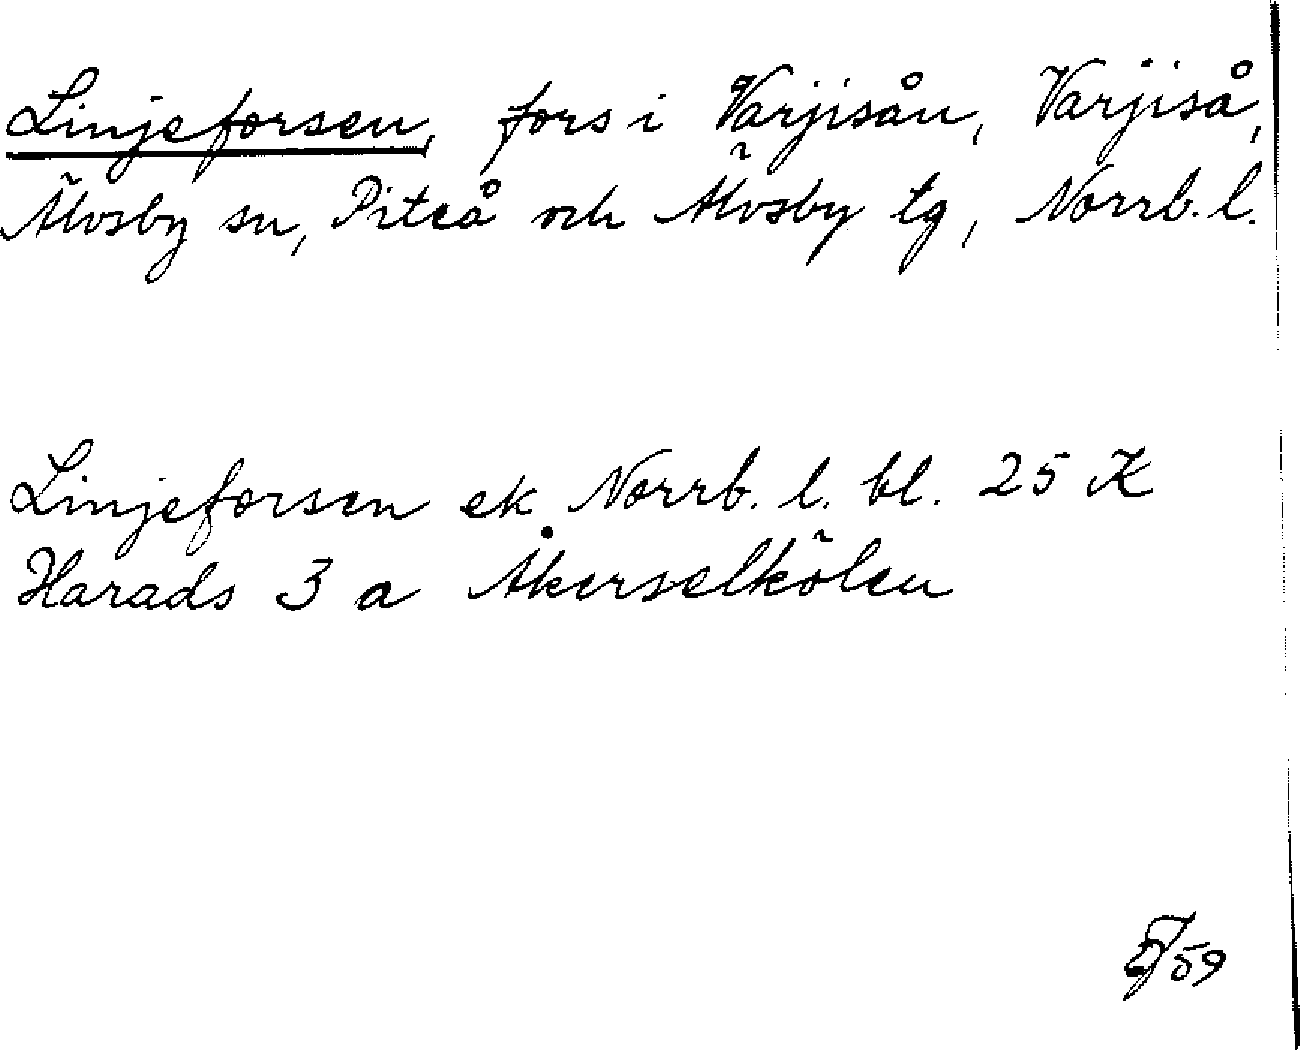 Linjeforsen, fors i Varjisån, Varjiså,
Älvsby sn, Piteå och Älvsby tg, Norrb. l.
Linjeforsen ek Norrb. l. bl. 25 K
Harads 3 a Åkerselkölen
/59